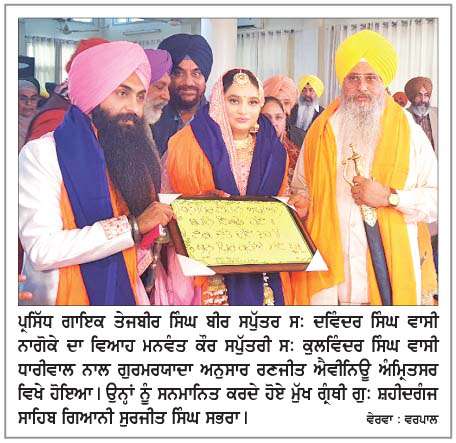 ਪ੍ਰਸਿੱਧ ਗਾਇਕ ਤੇਜਬੀਰ ਸਿੰਘ ਬੀਰ ਸਪੁੱਤਰ ਸ: ਦਵਿੰਦਰ ਸਿੰਘ ਵਾਸੀ
ਨਾਗੋਕੇ ਦਾ ਵਿਆਹ ਮਨਵੰਤ ਕੌਰ ਸਪੁੱਤਰੀ ਸ: ਕੁਲਵਿੰਦਰ ਸਿੰਘ ਵਾਸੀ
ਧਾਰੀਵਾਲ ਨਾਲ ਗੁਰਮਰਯਾਦਾ ਅਨੁਸਾਰ ਰਣਜੀਤ ਐਵੀਨਿਊ ਅੰਮ੍ਰਿਤਸਰ
ਵਿਖੇ ਹੋਇਆ। ਉਨ੍ਹਾਂ ਨੂੰ ਸਨਮਾਨਿਤ ਕਰਦੇ ਹੋਏ ਮੁੱਖ ਗ੍ਰੰਥੀ ਗੁ: ਸ਼ਹੀਦਗੰਜ
ਸਾਹਿਬ ਗਿਆਨੀ ਸੁਰਜੀਤ ਸਿੰਘ ਸਭਰਾ। ਵੇਰਵਾ : ਵਰਪਾਲ